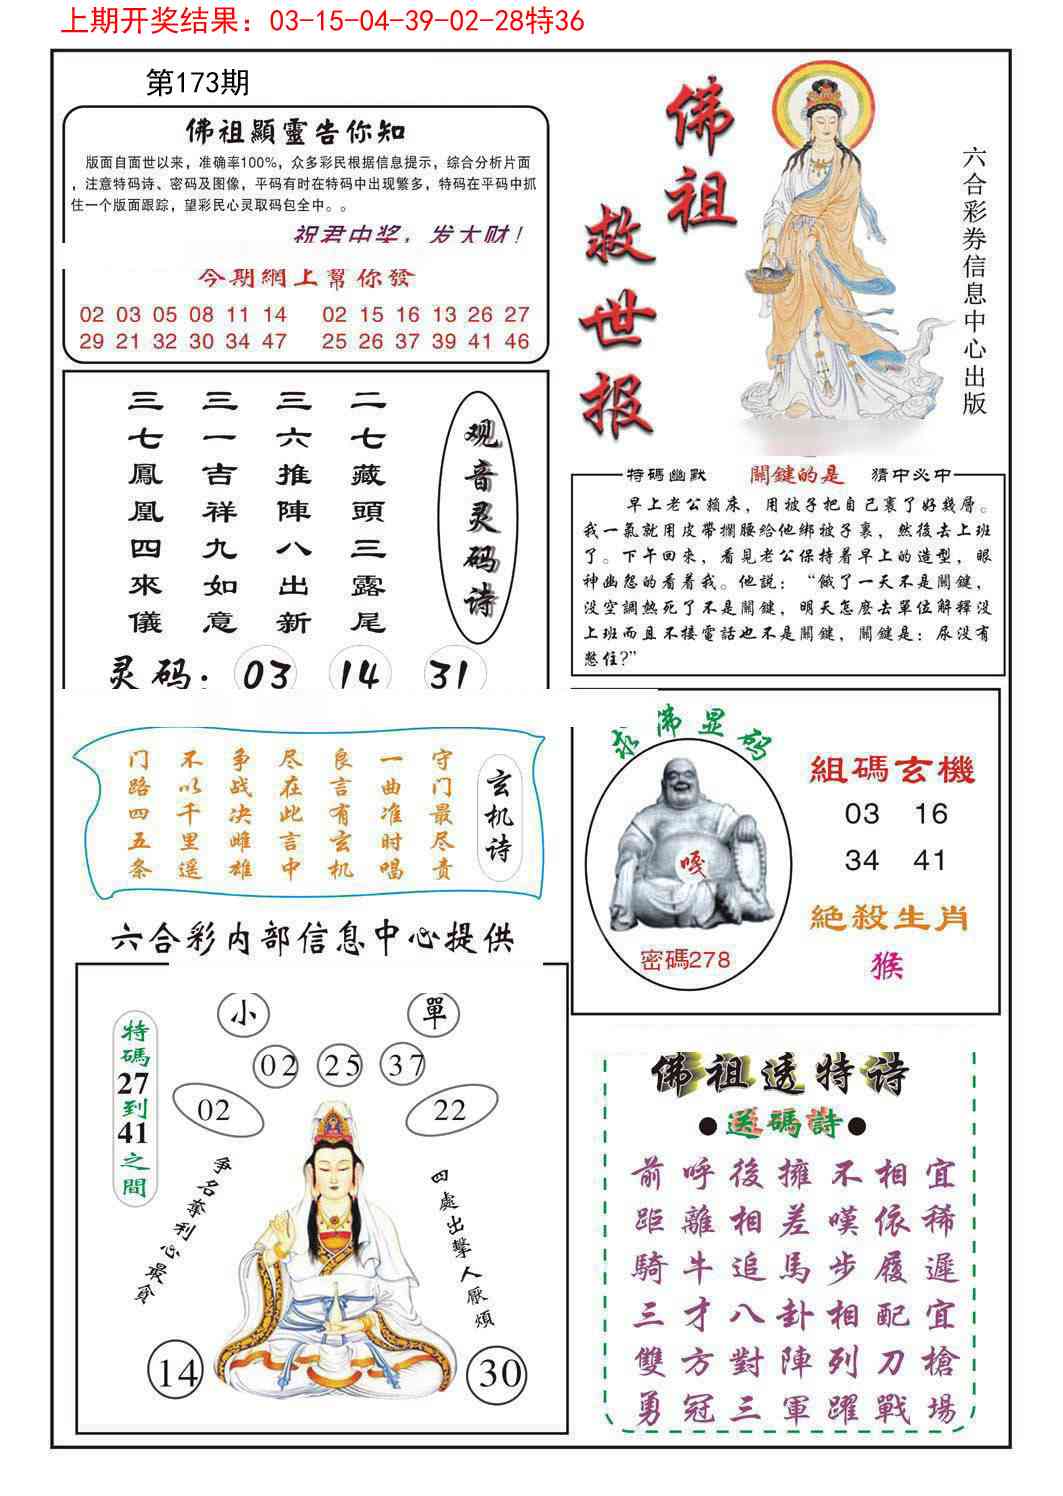 上期开奖结果：03-15-04-39-02-28特36
第173期
佛祖顯靈告你知
版面自面世以来，准确率100%，众多彩民根据信息提示，综合分析片面
，注意特码诗、密码及图像，平码有时在特码中出现繁多，特码在平码中抓
住一个版面跟踪，望彩民心灵取码包全中。。
祝君中奖，发大财！
今期網上幫你發
02 03 05 08 11 14 02 15 16 13 26 27
29 21 32 30 34 47 25 26 37 39 41 46
佛祖
救世报
六合彩券信息中心出版
观音灵码诗
二七藏頭三露尾
三六推陳八出新
三一吉祥九如意
三七鳳凰四來儀
灵码：03 14 31
特碼幽默 關鍵的是 猜中必中
早上老公賴床，用被子把自己裹了好幾層。
我一氣就用皮帶攔腰給他綁被子裏，然後去上班
了。下午回來，看見老公保持着早上的造型，眼
神幽怨的看着我。他説：“餓了一天不是關鍵，
没空調熱死了不是關鍵，明天怎麽去單位解釋没
上班而且不接電話也不是關鍵，關鍵是：尿没有
憋住？”
玄机诗
守门最尽责
一曲准时唱
良言有玄机
尽在此言中
争战决雌雄
不以千里遥
门路四五条
求佛显码
嘎
密碼278
組碼玄機
03 16
34 41
絶殺生肖
猴
六合彩内部信息中心提供
小 單
02 25 37
02 22
特碼27到41之間
爭名奪利心最貪
四處出擊人厭煩
14 30
佛祖透特诗
●送碼詩●
前呼後擁不相宜
距離相差嘆依稀
騎牛追馬步履遲
三才八卦相配宜
雙方對陣列刀槍
勇冠三軍躍戰場